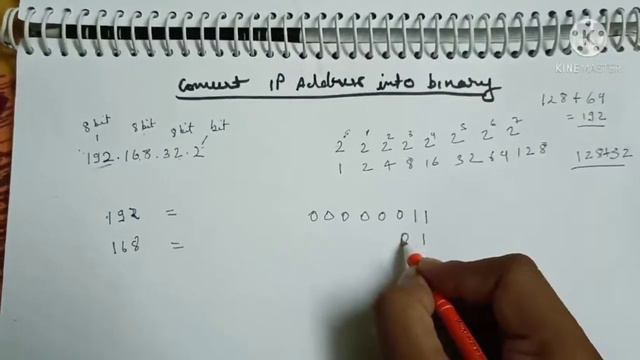 Convert IP Address into binary
8 bit 8 bit 8 bit bit
192.168.32.2
2⁰ 2¹ 2² 2³ 2⁴ 2⁵ 2⁶ 2⁷
1 2 4 8 16 32 64 128
128+64
= 192
128+32
192 = 0 0 0 0 0 0 1 1
168 = 0 1
KINEMASTER